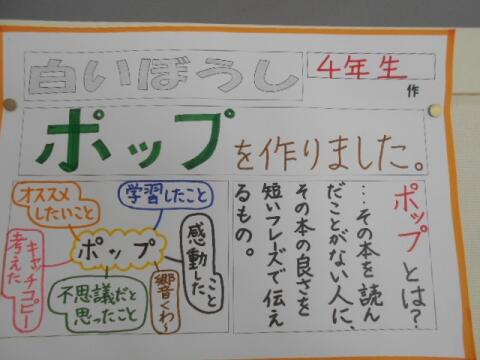 白いぼうし
4年生
作
ポップを作りました。
オススメ
したいこと
学習したこと
ポップ
感動したこと
キャッチコピー
考えた
不思議だと
思ったこと
ポップとは?
…その本を読ん
だことがない人に、
その本の良さを
短いフレーズで伝え
るもの。